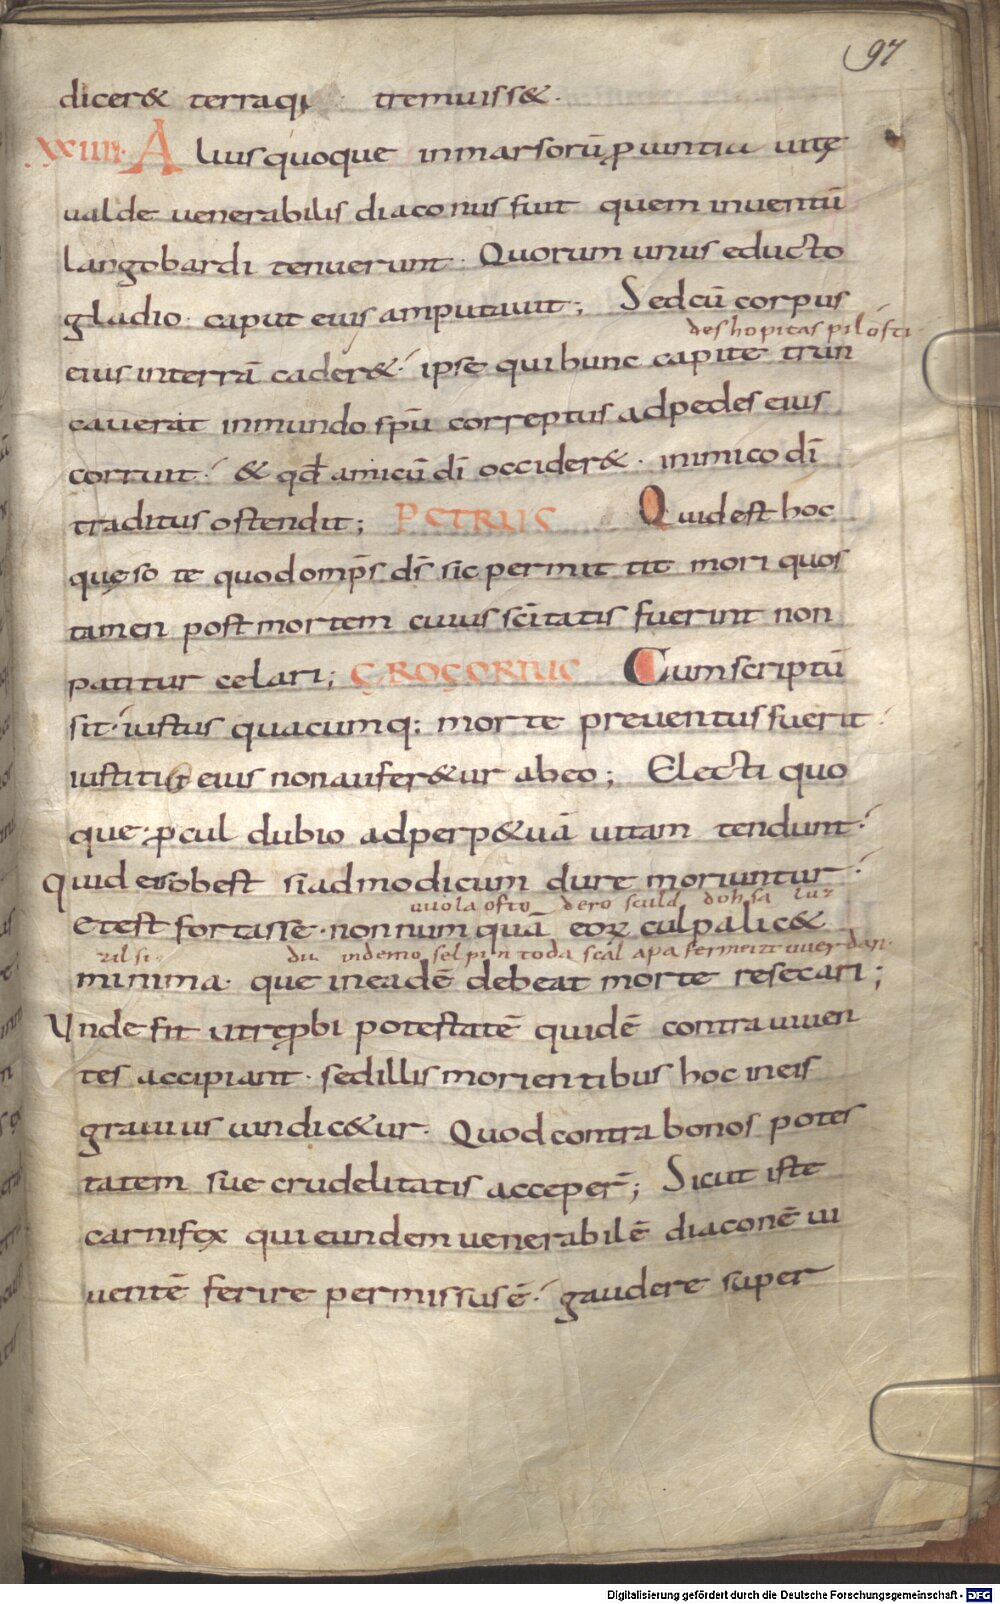 97
dicer& terraq; tremuiss&.
XXIIII. Aluis quoque in marsorū ꝓuintia uitę
ualde uenerabilis diaconus fuit quem inuentū
langobardi tenuerunt. Quorum unus educto
gladio. caput eius amputauit; Sed cū corpus
des hopitas pilosti
eius in terrā cader&. ipse qui hunc capite trun
cauerat inmundo spū correptus ad pedes eius
corruit. & qđ amicū dī occider&. inimico dī
traditus ostendit; PETRUS Quid est hoc
quęso te quod omps ds sic permittit mori quos
tamen post mortem cuius scītatis fuerint non
patitur celari; GROGORIUS Cum scriptū
sit. iustus quacumq: morte preuentus fuerit.
iustitia eius non aufer&ur ab eo; Electi quo
que. ꝓcul dubio ad perp&uā uitam tendunt.
Quid eis obest si ad modicum dure moriuntur.
uuola ofto dero sculd doh sa luz
Et est fortasse. non numquā eoꝝ culpa lic&
zil si. diu in demo selpin toda scal
minima. que in eadē debeat morte resecari;
Unde fit ut reꝓbi potestatē quidē contra uiuen
tes accipiant. sed illis morientibus hoc in eis
grauius uindic&ur. Quod contra bonos potes
tatem sue crudelitatis acceper̄; Sicut iste
carnifex qui eundem uenerabilē diaconē ui
uentē ferire permissus ē. gaudere super
Digitalisierung gefördert durch die Deutsche Forschungsgemeinschaft - DFG